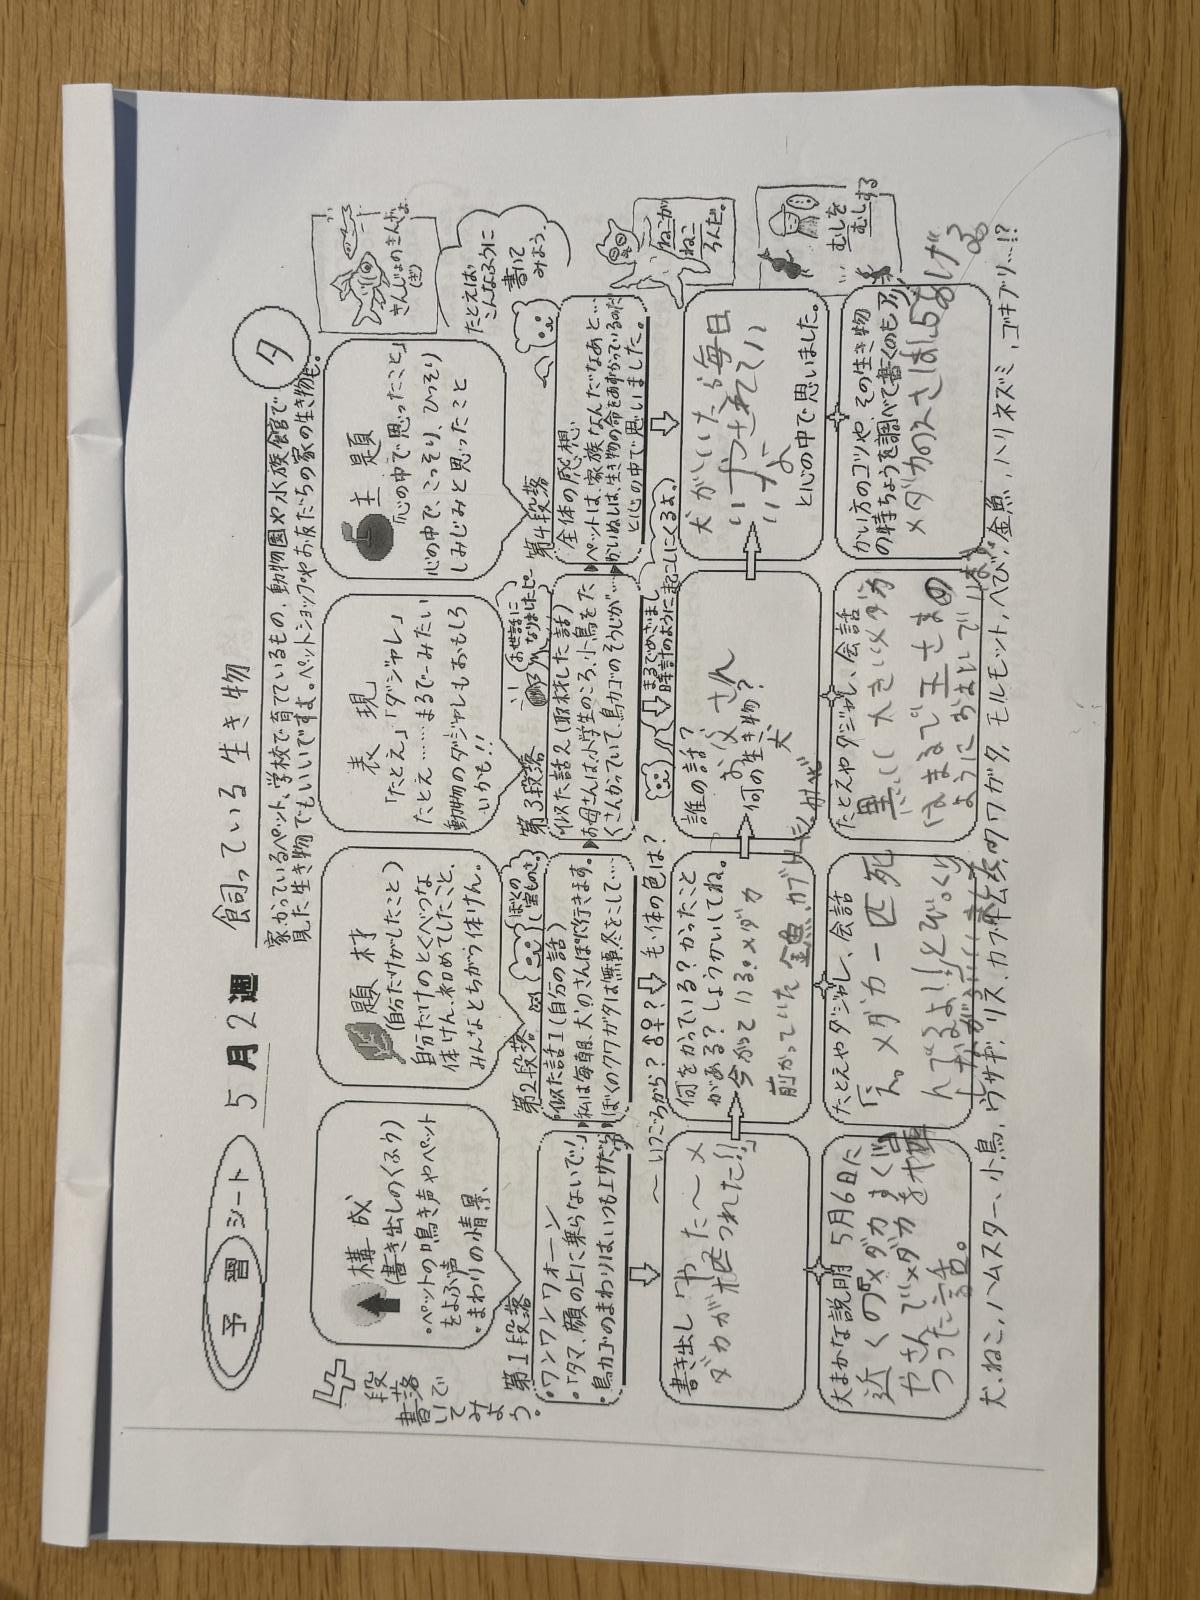 予習シート
5月2週
飼っている生き物
夕
家かっているペット、学校で育てているもの、動物園や水族館で
見た生き物でもいいですよ。ペットショップやお友だちの家の生き物も。
4段落で
書いてみよう。
構成
(書き出しのくふう)
・ペットの鳴き声やペット
をよぶ声
・まわりの情景、
題材
(自分だけがしたこと)
自分だけのとくべつな
体けん、初めてしたこと、
みんなとちがう体けん。
表現
「たとえ」「ダジャレ」
たとえ……まるで〜みたい
動物のダジャレもおもしろ
いかも!!
主題
「心の中で思ったこと」
心の中で、こっそり、ひっそり
しみじみと思ったこと
きんじょのきんぎょ
たとえば
こんなふうに
書いて
みよう。
第1段落
・ワンワンワオーン
・「タマ、顔の上に乗らないで!」
・鳥カゴのまわりはいつも
第2段落
ぼくの
宝もの
似た話1(自分の話)
私は毎朝、犬のさんぽに行きます。
ぼくのクワガタは無事冬をこして…
第3段落
お世話に
なりました
似た話2(取材した話)
お母さんは、小学生のころ、小鳥をた
くさんかっていて、鳥カゴのそうじが…
第4段落
全体の感想
ペットは、家族なんだなあと…
かいぬしは、生き物の命をあずかっているのだ
と心の中で思いました。
ねこが
ねこ
ろんだ。
むしを
むしする
〜いつごろから?♂♀?
毛・体の色は?
まるでめざまし
時計のように起こしにくるよ。
書き出し「やった〜メ
ダカがつれた!!」
何をかっている?かったこと
がある?しょうかいしてね。
今かっている。メダカ
前かっていた 金魚
誰の話?
お父さん
何の生き物?
犬
犬がいたら毎日
いやされてい
いなよ
と心の中で思いました。
大まかな説明 5月6日に
近くのメダカすくい
やさんでメダカを
つった話。
たとえやダジャレ、会話
「え。メダカ一匹死
んでるよ!」とびっくり
たとえやダジャレ、会話
黒い大きいメダカ
はまるで王さまの
ように
かい方のコツや、その生き物
の特ちょうを調べて書くのもアリ
メダカのえさは
あげる
犬、ねこ、ハムスター、小鳥、ウサギ、リス、カブト虫、クワガタ、モルモット、へび、金魚、ハリネズミ、ゴキブリ…!?